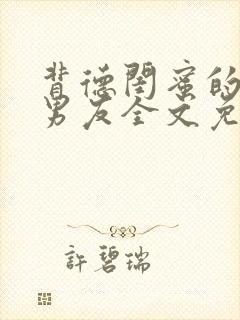 背德閨蜜的
男友全文免
許碧瑞